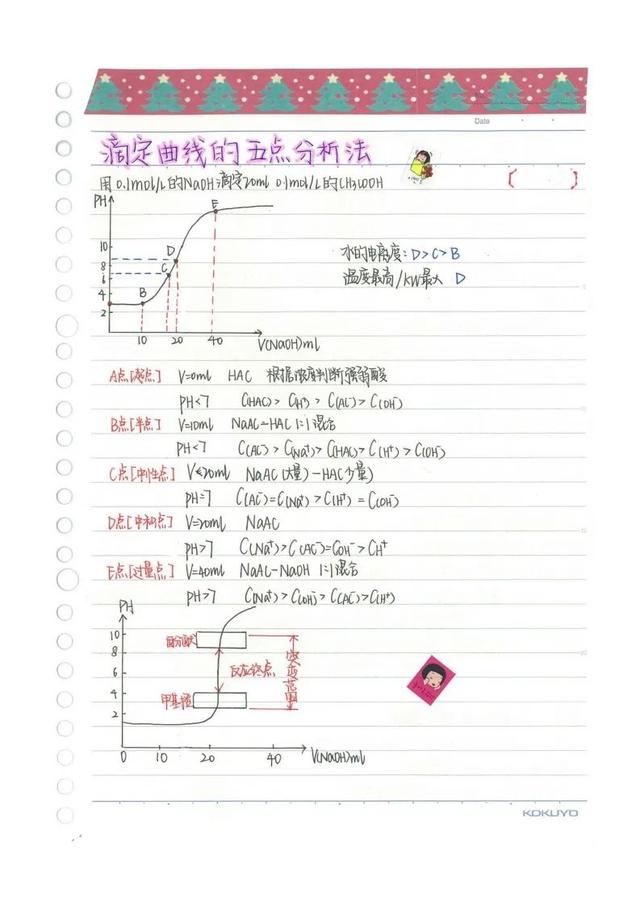 Date
滴定曲线的五点分析法
用0.1mol/L的NaOH滴定20ml 0.1mol/L的CH3COOH
PH
E
10
8
6
4
2
D
C
B
10 20 40
V(NaOH)ml
水的电离度:D>C>B
温度最高/KW最大 D
A点[起点] V=0ml HAC 根据浓度判断强弱酸
PH<7 C(HAC)>C(H+)>C(AC-)>C(OH-)
B点[半点] V=10ml NaAC-HAC 1:1混合
PH<7 C(AC-)>C(Na+)>C(HAC)>C(H+)>C(OH-)
C点[中性点] V<20ml NaAC(大量)-HAC(少量)
PH=7 C(AC-)=C(Na+)>C(H+)=C(OH-)
D点[中和点] V=20ml NaAC
PH>7 C(Na+)>C(AC-)=C(OH->CH+
E点[过量点] V=40ml NaAC-NaOH 1:1混合
PH>7 C(Na+)>C(OH-)>C(AC-)>C(H+)
PH
10
8
6
4
2
反应终点
突变范围
甲基橙
0 10 20 40 V(NaOH)ml
KOKUYO